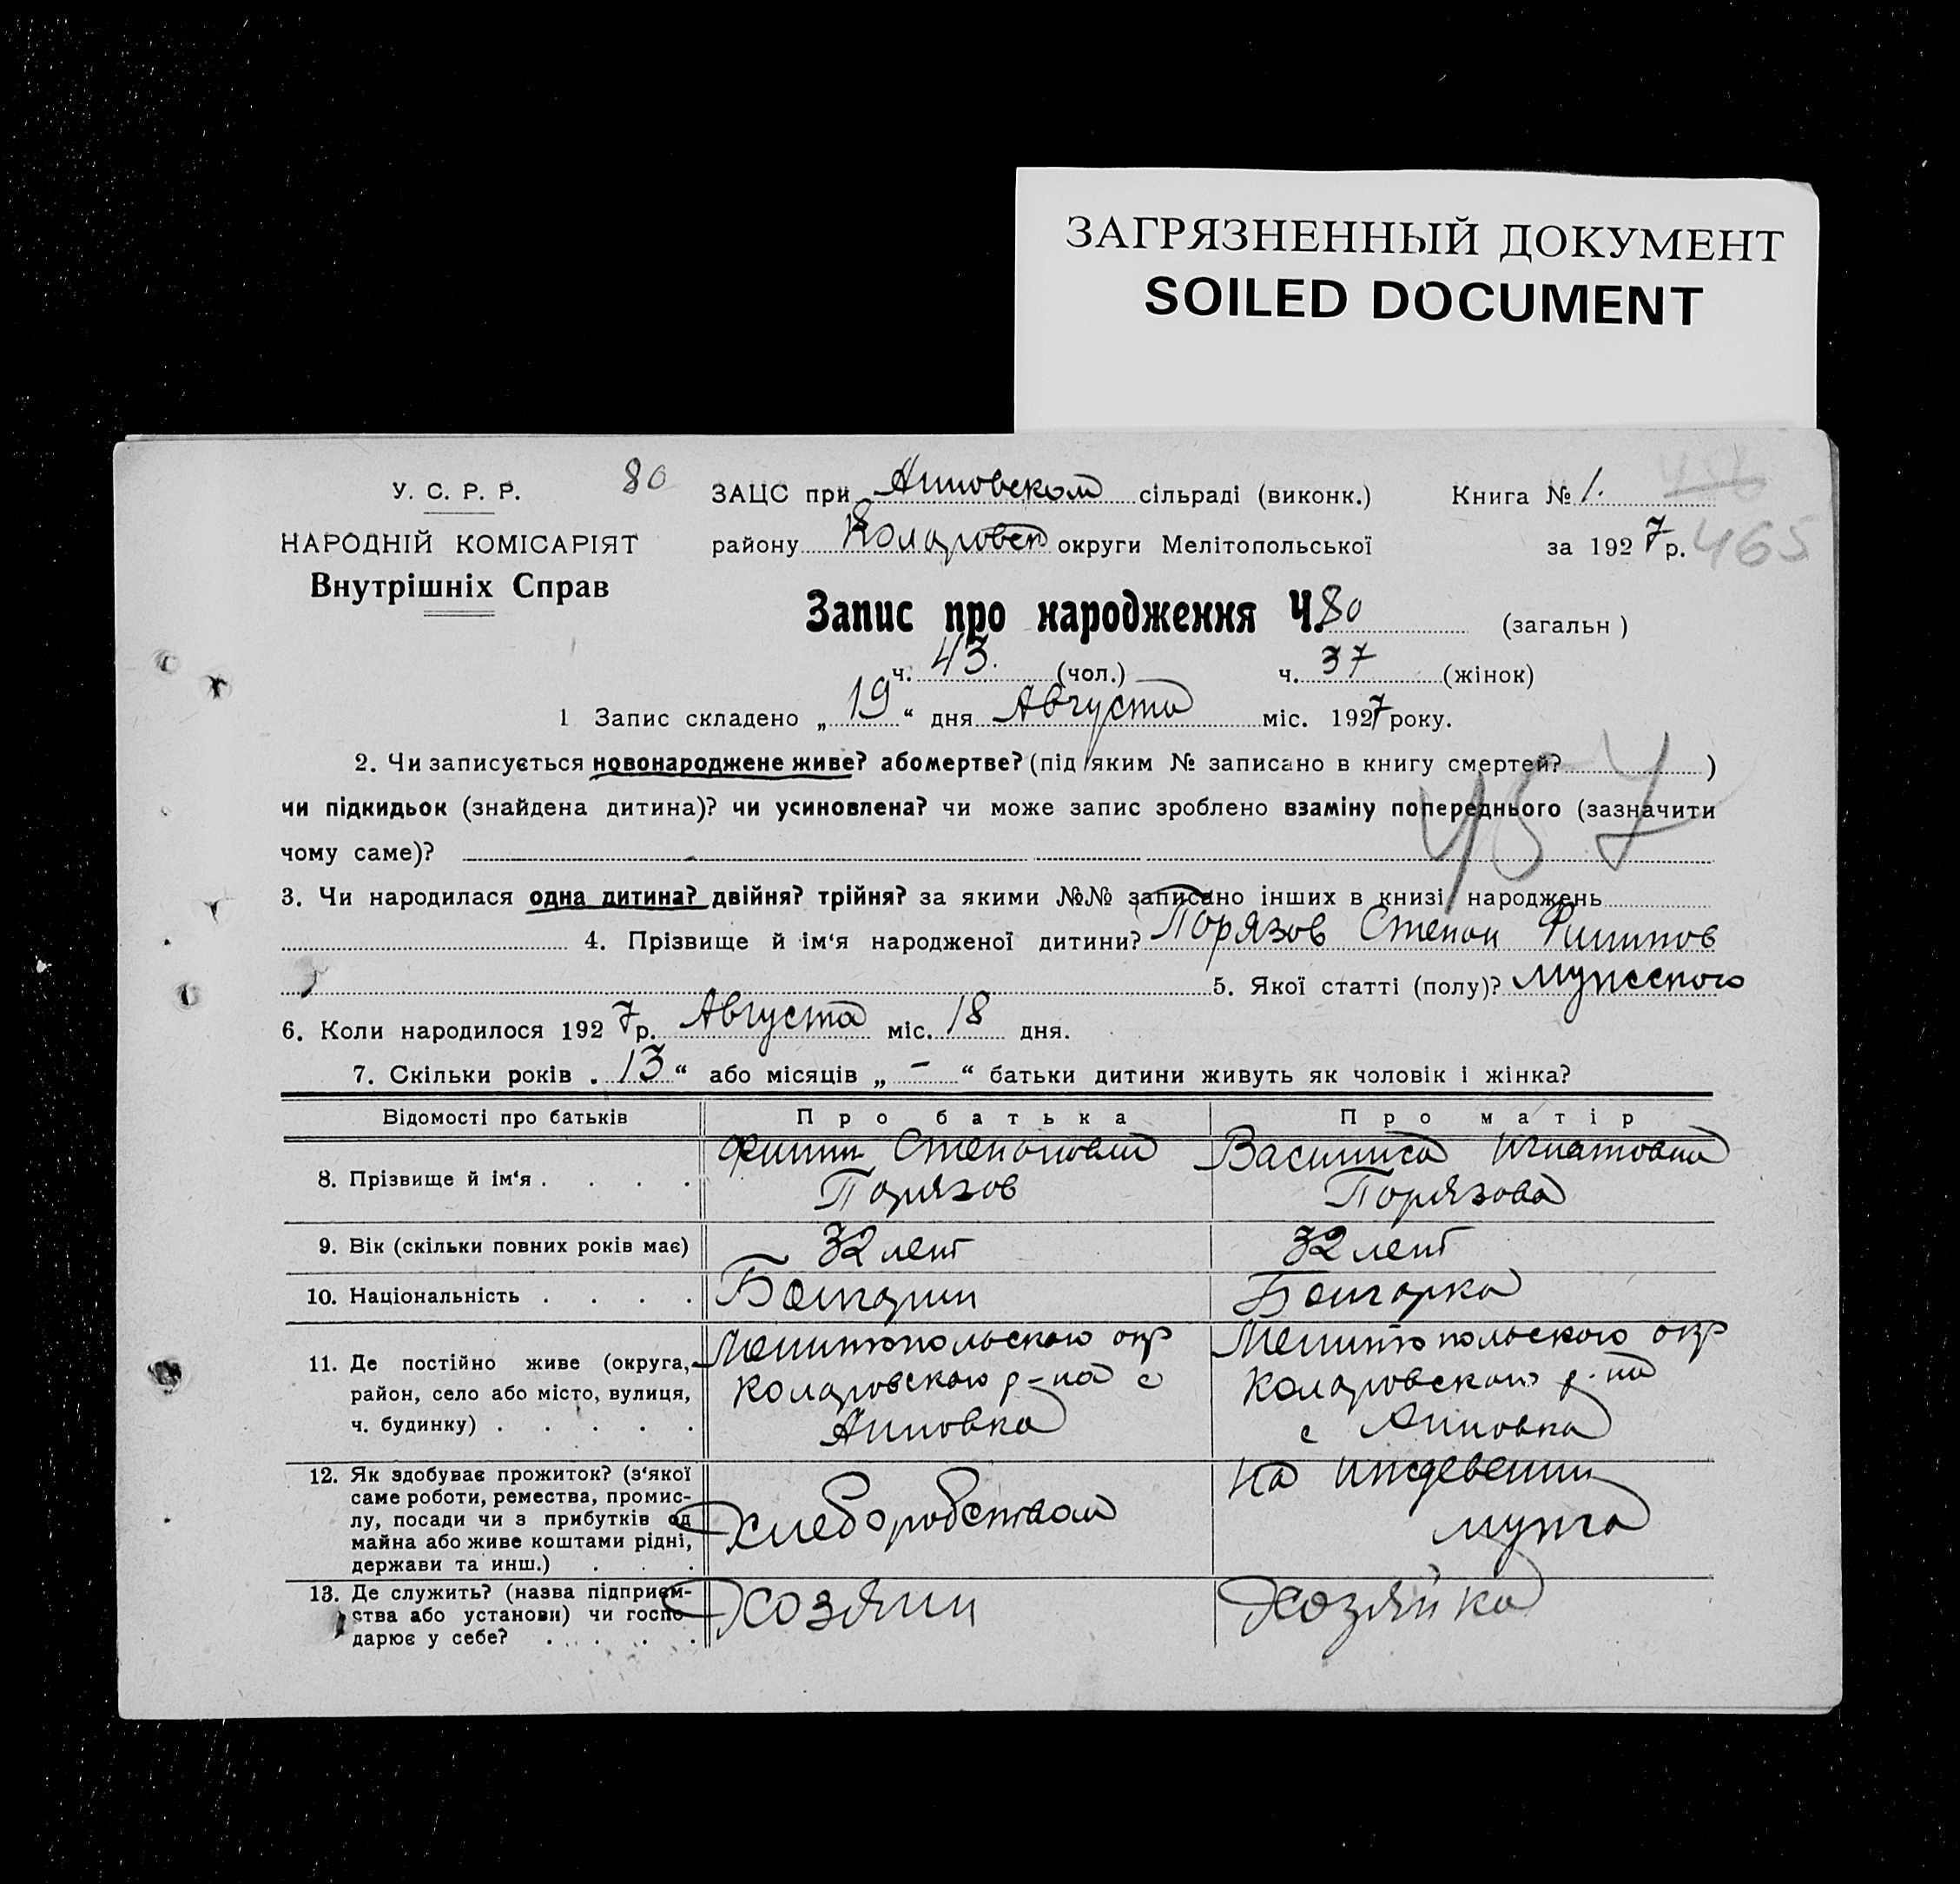 ЗАГРЯЗНЕННЫЙ ДОКУМЕНТ
SOILED DOCUMENT
У. С. Р. Р. 80 ЗАЦС при Анновском сільраді (виконк.) Книга № 1.
НАРОДНІЙ КОМІСАРІЯТ району Коларовск округи Мелітопольської за 1927 р. 465
Внутрішніх Справ
Запис про народження Ч. 80 (загальн )
ч. 43. (чол.) ч. 37 (жінок)
1 Запис складено „ 19 “ дня Августа міс. 1927 року.
2. Чи записується новонароджене живе? або мертве? (під яким № записано в книгу смертей? )
чи підкидьок (знайдена дитина)? чи усиновлена? чи може запис зроблено взаміну попереднього (зазначити
чому саме)? 457
3. Чи народилася одна дитина? двійня? трійня? за якими №№ записано інших в книзі народжень
4. Прізвище й ім‘я народженої дитини? Порязов Степан Филипов
5. Якої статті (полу)? мужеского
6. Коли народилося 1927 р. Августа міс. 18 дня.
7. Скільки років „ 13 “ або місяців „ - “ батьки дитини живуть як чоловік і жінка?
Відомості про батьків Про батька Про матір
8. Прізвище й ім‘я . . . . Филип Степанович Порязов Василиса Игнатовна Порязова
9. Вік (скільки повних років має) 32 лет 32 лет
10. Національність . . . . Болгарин Болгарка
11. Де постійно живе (округа, Мелитопольского окр Мелитопольского окр
район, село або місто, вулиця, Коларовского р-на с Коларовского р-на
ч. будинку) . . . . . Анновка с Анновка
12. Як здобуває прожиток? (з‘якої На иждевении
саме роботи, ремества, промис-
лу, посади чи з прибутків од Хлеборобством мужа
майна або живе коштами рідні,
держави та инш.) . . .
13. Де служить? (назва підприєм- Хозяин Хозяйка
ства або установи) чи госпо-
дарює у себе? . . . .